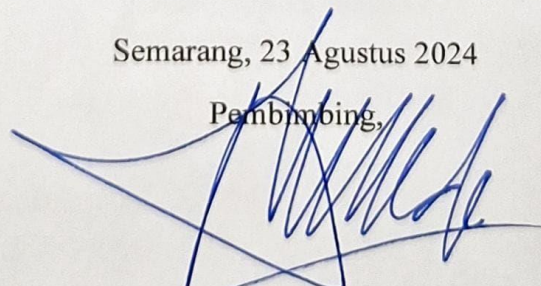 Semarang, 23 Agustus 2024
Pembimbing,